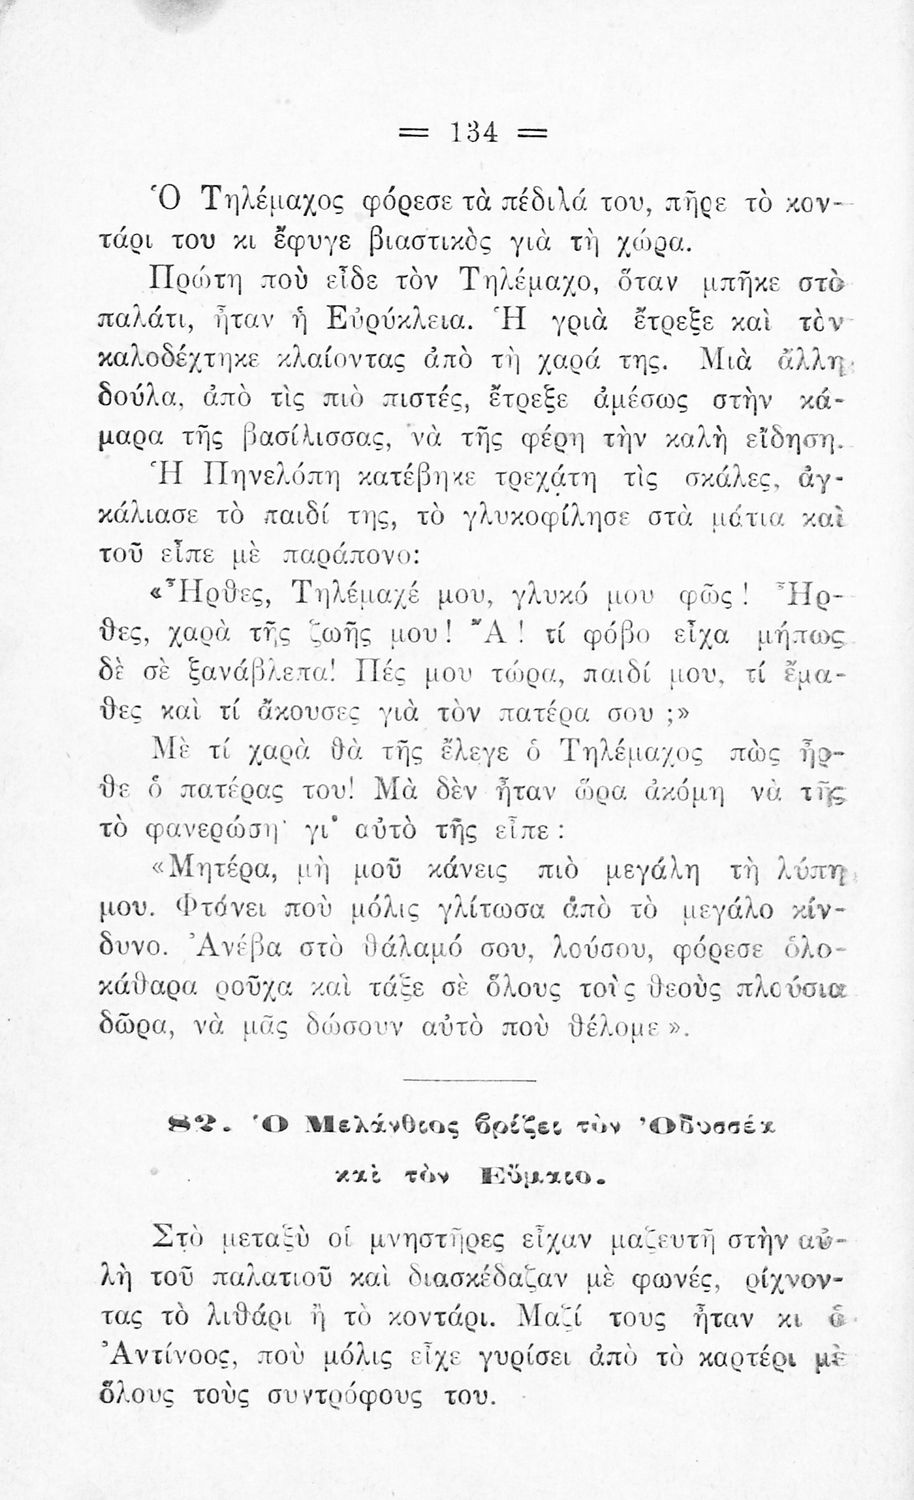 = 134 =
Ὁ Τηλέμαχος φόρεσε τὰ πέδιλά του, πῆρε τὸ κον-
τάρι του κι ἔφυγε βιαστικὸς γιὰ τὴ χώρα.
Πρώτη ποὺ εἶδε τὸν Τηλέμαχο, ὅταν μπῆκε στὸ
παλάτι, ἦταν ἡ Εὐρύκλεια. Ἡ γριὰ ἔτρεξε καὶ τὸν
καλοδέχτηκε κλαίοντας ἀπὸ τὴ χαρά της. Μιὰ ἄλλη
δούλα, ἀπὸ τὶς πιὸ πιστές, ἔτρεξε ἀμέσως στὴν κά-
μαρα τῆς βασίλισσας, νὰ τῆς φέρη τὴν καλὴ εἴδηση.
Ἡ Πηνελόπη κατέβηκε τρεχάτη τὶς σκάλες, ἀγ-
κάλιασε τὸ παιδί της, τὸ γλυκοφίλησε στὰ μάτια καὶ
τοῦ εἶπε μὲ παράπονο:
«Ἦρθες, Τηλέμαχέ μου, γλυκό μου φῶς! Ἦρ-
θες, χαρὰ τῆς ζωῆς μου! Ἄ! τί φόβο εἶχα μήπως
δὲ σὲ ξανάβλεπα! Πές μου τώρα, παιδί μου, τί ἔμα-
θες καὶ τί ἄκουσες γιὰ τὸν πατέρα σου ;»
Μὲ τί χαρὰ θὰ τῆς ἔλεγε ὁ Τηλέμαχος πὼς ἦρ-
θε ὁ πατέρας του! Μὰ δὲν ἦταν ὥρα ἀκόμη νὰ τῆς
τὸ φανερώση· γι' αὐτὸ τῆς εἶπε:
«Μητέρα, μὴ μοῦ κάνεις πιὸ μεγάλη τὴ λύπη
μου. Φτάνει ποὺ μόλις γλίτωσα ἀπὸ τὸ μεγάλο κίν-
δυνο. Ἀνέβα στὸ θάλαμό σου, λούσου, φόρεσε ὁλο-
κάθαρα ροῦχα καὶ τάξε σὲ ὅλους τοὺς θεοὺς πλούσια
δῶρα, νὰ μᾶς δώσουν αὐτὸ ποὺ θέλομε».
82. Ὁ Μελάνθιος βρίζει τὸν Ὀδυσσέα
καὶ τὸν Εὔμαιο.
Στὸ μεταξὺ οἱ μνηστῆρες εἶχαν μαζευτῆ στὴν αὐ-
λὴ τοῦ παλατιοῦ καὶ διασκέδαζαν μὲ φωνές, ρίχνον-
τας τὸ λιθάρι ἢ τὸ κοντάρι. Μαζί τους ἦταν κι ὁ
Ἀντίνοος, ποὺ μόλις εἶχε γυρίσει ἀπὸ τὸ καρτέρι μὲ
ὅλους τοὺς συντρόφους του.